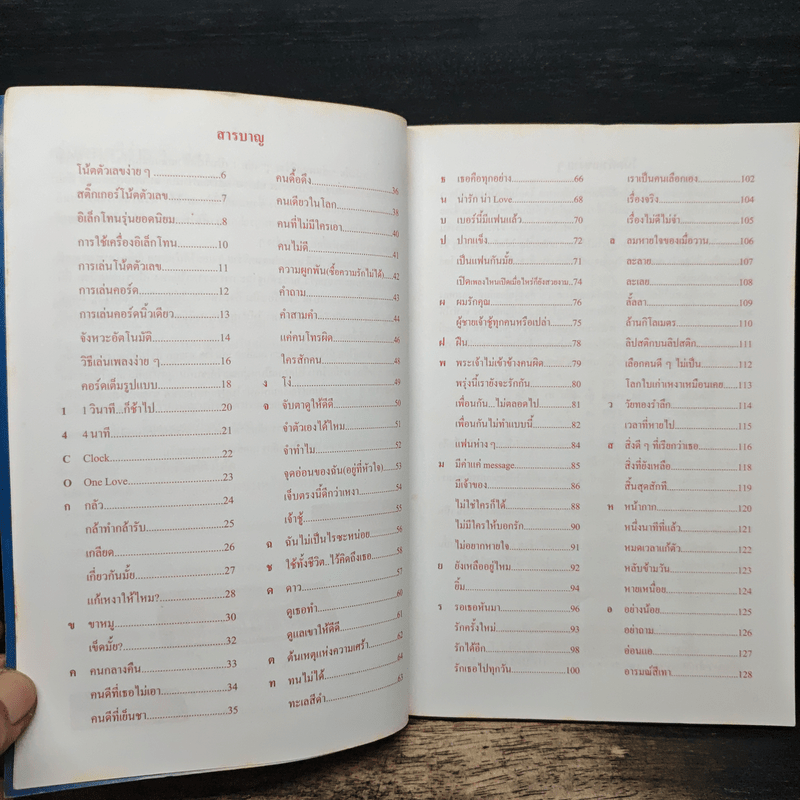 สารบาญ
โน้ตตัวเลขง่าย ๆ 6
สติ๊กเกอร์โน้ตตัวเลข 7
อิเล็กโทนรุ่นยอดนิยม 8
การใช้เครื่องอิเล็กโทน 10
การเล่นโน้ตตัวเลข 11
การเล่นคอร์ด 12
การเล่นคอร์ดนิ้วเดียว 13
จังหวะอัตโนมัติ 14
วิธีเล่นเพลงง่าย ๆ 16
คอร์ดเต็มรูปแบบ 18
1 1 วินาที...ก็ช้าไป 20
4 4 นาที 21
C Clock 22
O One Love 23
ก กลัว 24
กล้าทำกล้ารับ 25
เกลียด 26
เกี่ยวกันมั้ย 27
แก้เหงาให้ไหม? 28
ข ขาหมู 30
เข็ดมั้ย? 32
ค คนกลางคืน 33
คนดีที่เธอไม่เอา 34
คนดีที่เย็นชา 35
คนดื้อดึง 36
คนเดียวในโลก 38
คนที่ไม่มีใครเอา 40
คนไม่ดี 41
ความผูกพัน(ซื้อความรักไม่ได้) 42
คำถาม 43
คำสามคำ 44
แค่คนโทรผิด 46
ใครสักคน 48
ง โง่ 49
จ จับตาดูให้ดีดี 50
จำตัวเองได้ไหม 51
จำทำไม 52
จุดอ่อนของฉัน(อยู่ที่หัวใจ) 53
เจ็บตรงนี้ดีกว่าเหงา 54
เจ้าชู้ 55
ฉ ฉันไม่เป็นไรซะหน่อย 56
ช ใช้ทั้งชีวิต..ไว้คิดถึงเธอ 58
ด ดาว 57
ดูเธอทำ 60
ดูแลเขาให้ดีดี 61
ต ต้นเหตุแห่งความเศร้า 62
ท ทนไม่ได้ 64
ทะเลสีดำ 63
ธ เธอคือทุกอย่าง 66
น น่ารัก น่า Love 68
บ เบอร์นี้มีแฟนแล้ว 70
ป ปากแข็ง 72
เป็นแฟนกันมั้ย 71
เปิดเพลงไหนเปิดเมื่อไหร่ก็ยังสวยงาม 74
ผ ผมรักคุณ 76
ผู้ชายเจ้าชู้ทุกคนหรือเปล่า 75
ฝ ฝืน 78
พ พระเจ้าไม่เข้าข้างคนผิด 79
พรุ่งนี้เรายังจะรักกัน 80
เพื่อนกัน...ไม่ตลอดไป 81
เพื่อนกันไม่ทำแบบนี้ 82
แฟนห่าง ๆ 84
ม มีค่าแค่ message 85
มีเจ้าของ 86
ไม่ใช่ใครก็ได้ 88
ไม่มีใครให้บอกรัก 90
ไม่อยากหายใจ 91
ย ยังเหลืออยู่ไหม 92
ยิ้ม 94
ร รอเธอหันมา 96
รักครั้งใหม่ 93
รักได้อีก 98
รักเธอไปทุกวัน 100
เราเป็นคนเลือกเอง 102
เรื่องจริง 104
เรื่องไม่ดีไม่จำ 105
ล ลมหายใจของเมื่อวาน 106
ละลาย 107
ละเลย 108
ลั้ลลา 109
ล้านกิโลเมตร 110
ลิปสติกบนลิปสติก 111
เลือกคนดี ๆ ไม่เป็น 112
โลกใบเก่าเหงาเหมือนเคย 113
ว วัยทองรำลึก 114
เวลาที่หายไป 115
ส สิ่งดี ๆ ที่เรียกว่าเธอ 116
สิ่งที่ยังเหลือ 118
สิ้นสุดสักที 119
ห หน้ากาก 120
หนึ่งนาทีที่แล้ว 121
หมดเวลาแก้ตัว 122
หลับข้ามวัน 123
หายเหนื่อย 124
อ อย่างน้อย 125
อย่าถาม 126
อ่อนแอ 127
อารมณ์สีเทา 128